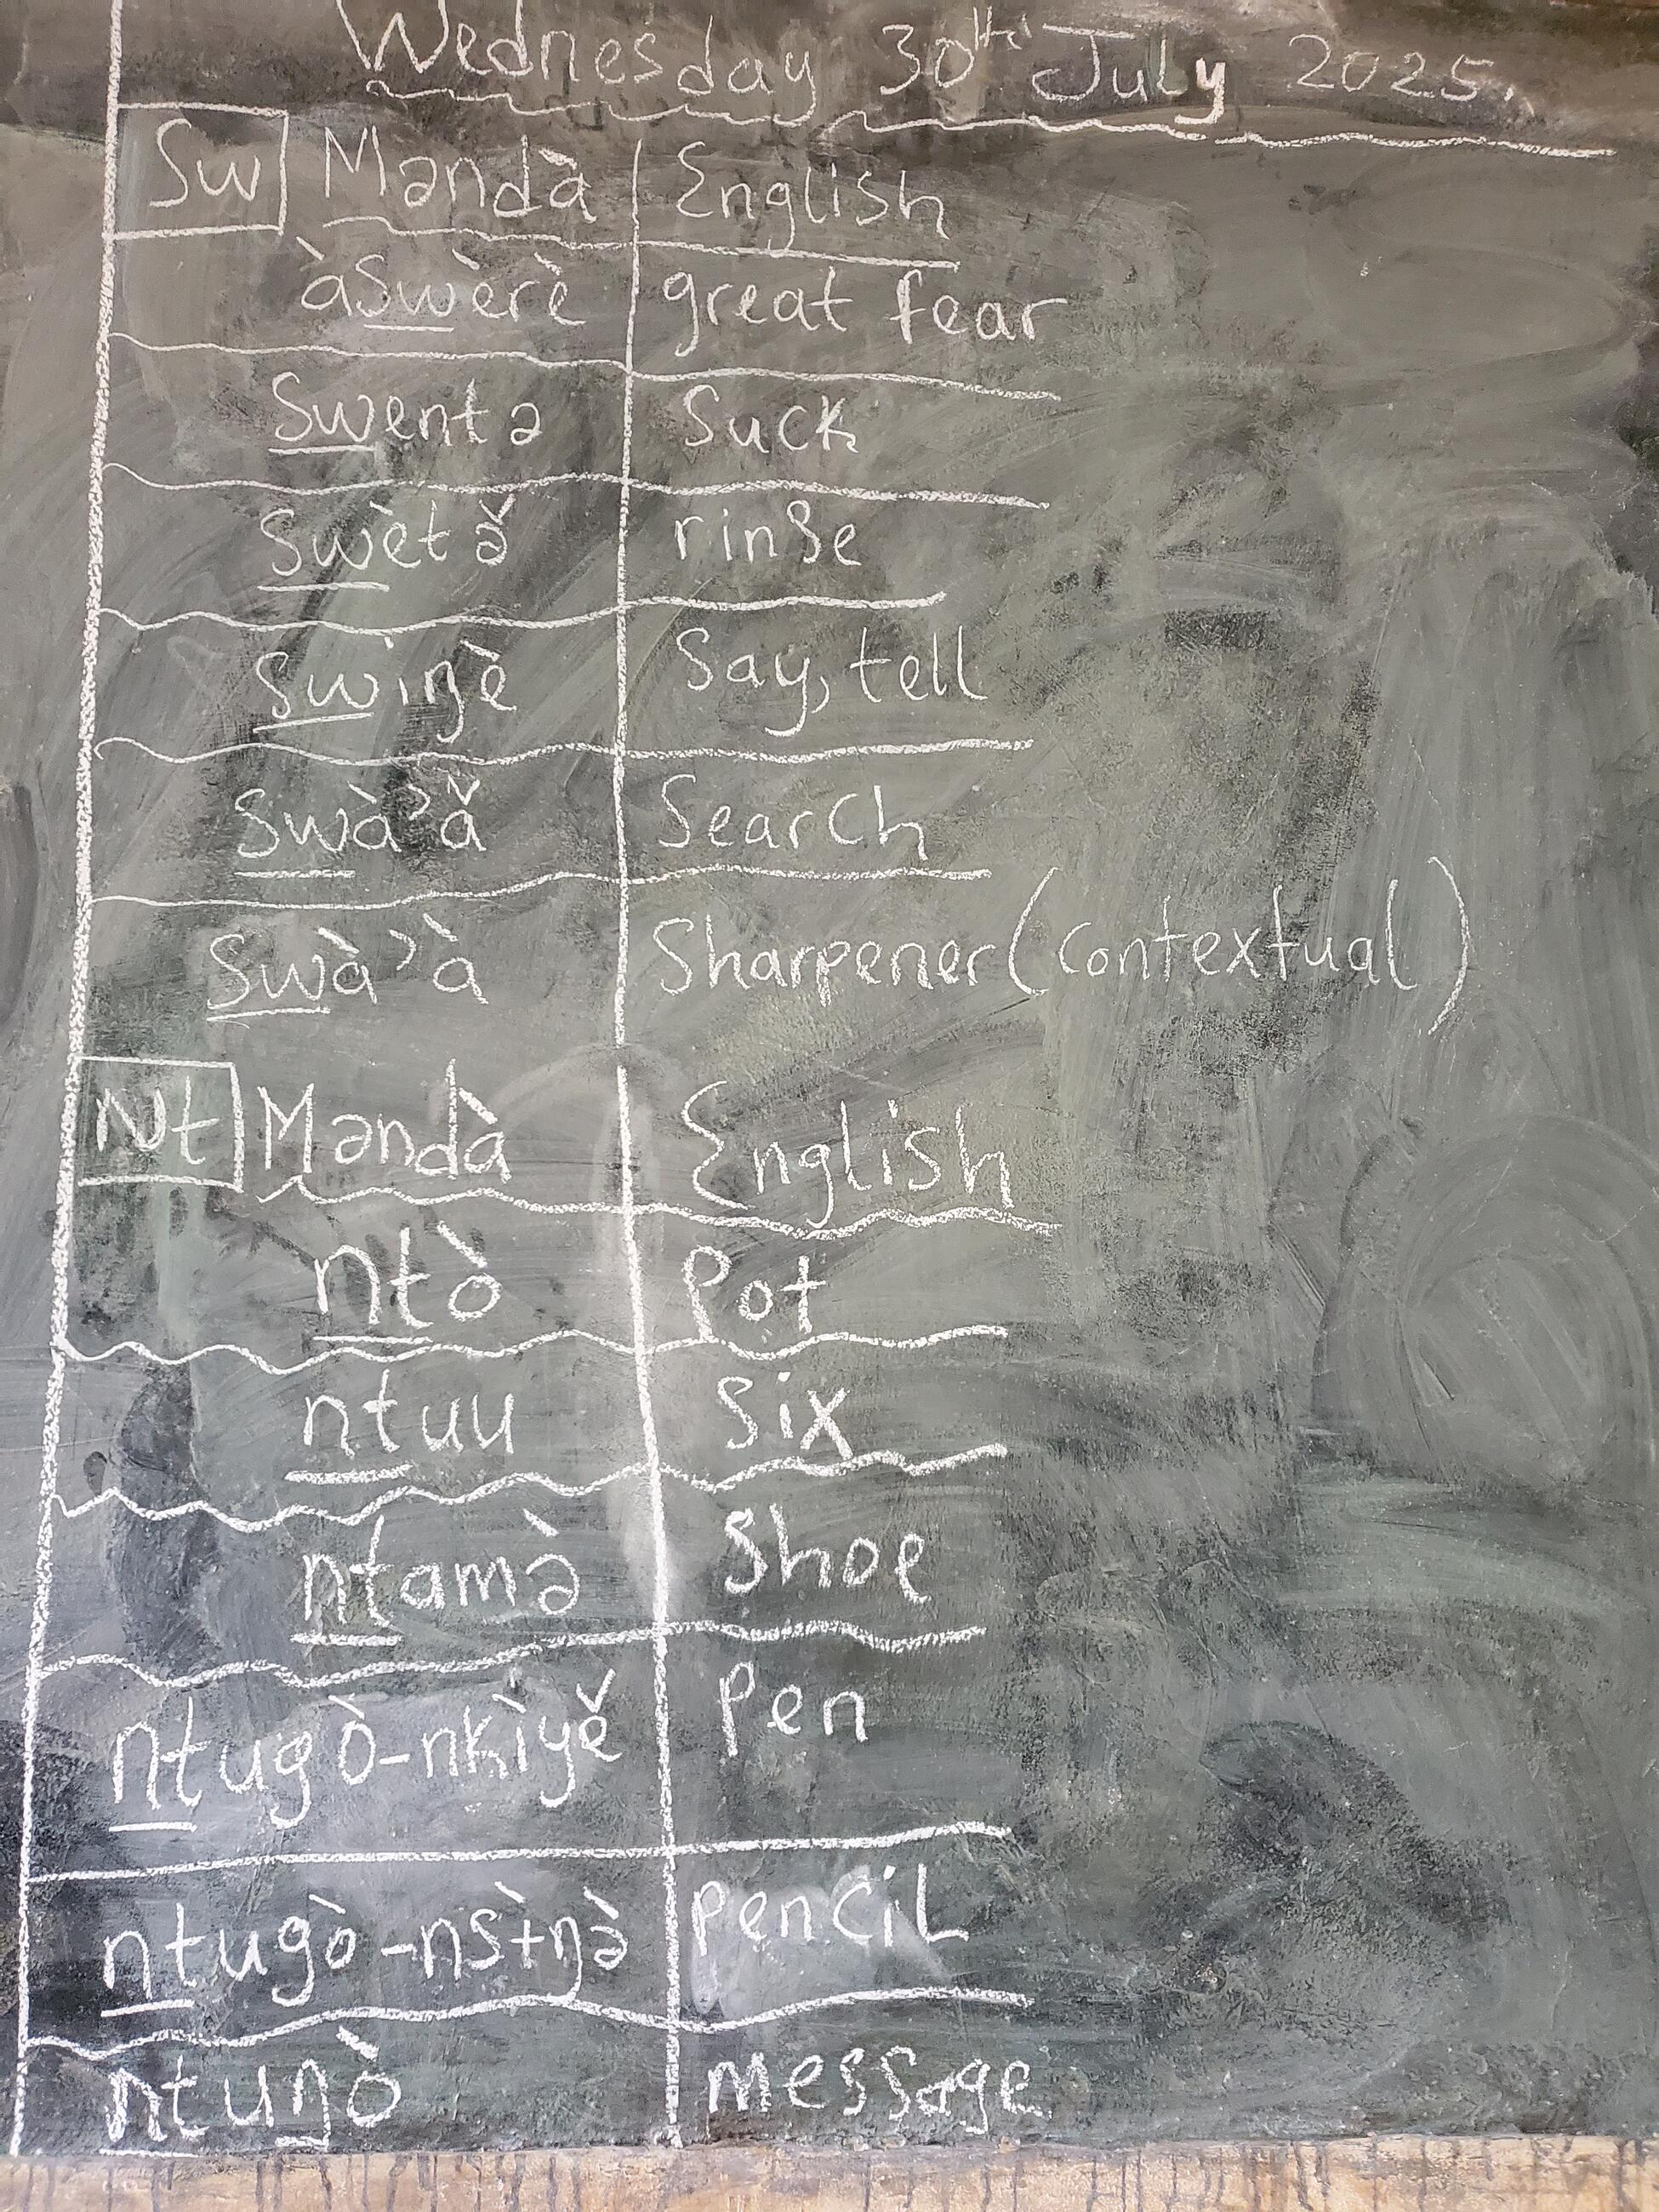 Wednesday 30th July 2025.
Sw Məndà English
àswèrè great fear
Swentə Suck
Swètə̌ rinse
swiŋè Say, tell
Swà'ǎ Search
Swà'à Sharpener (contextual)
Nt Məndà English
ntò Pot
ntuu Six
ntamə̀ Shoe
ntugò-nkìyě Pen
ntugò-nsɨ̀ŋə̀ pencil
ntuŋò message